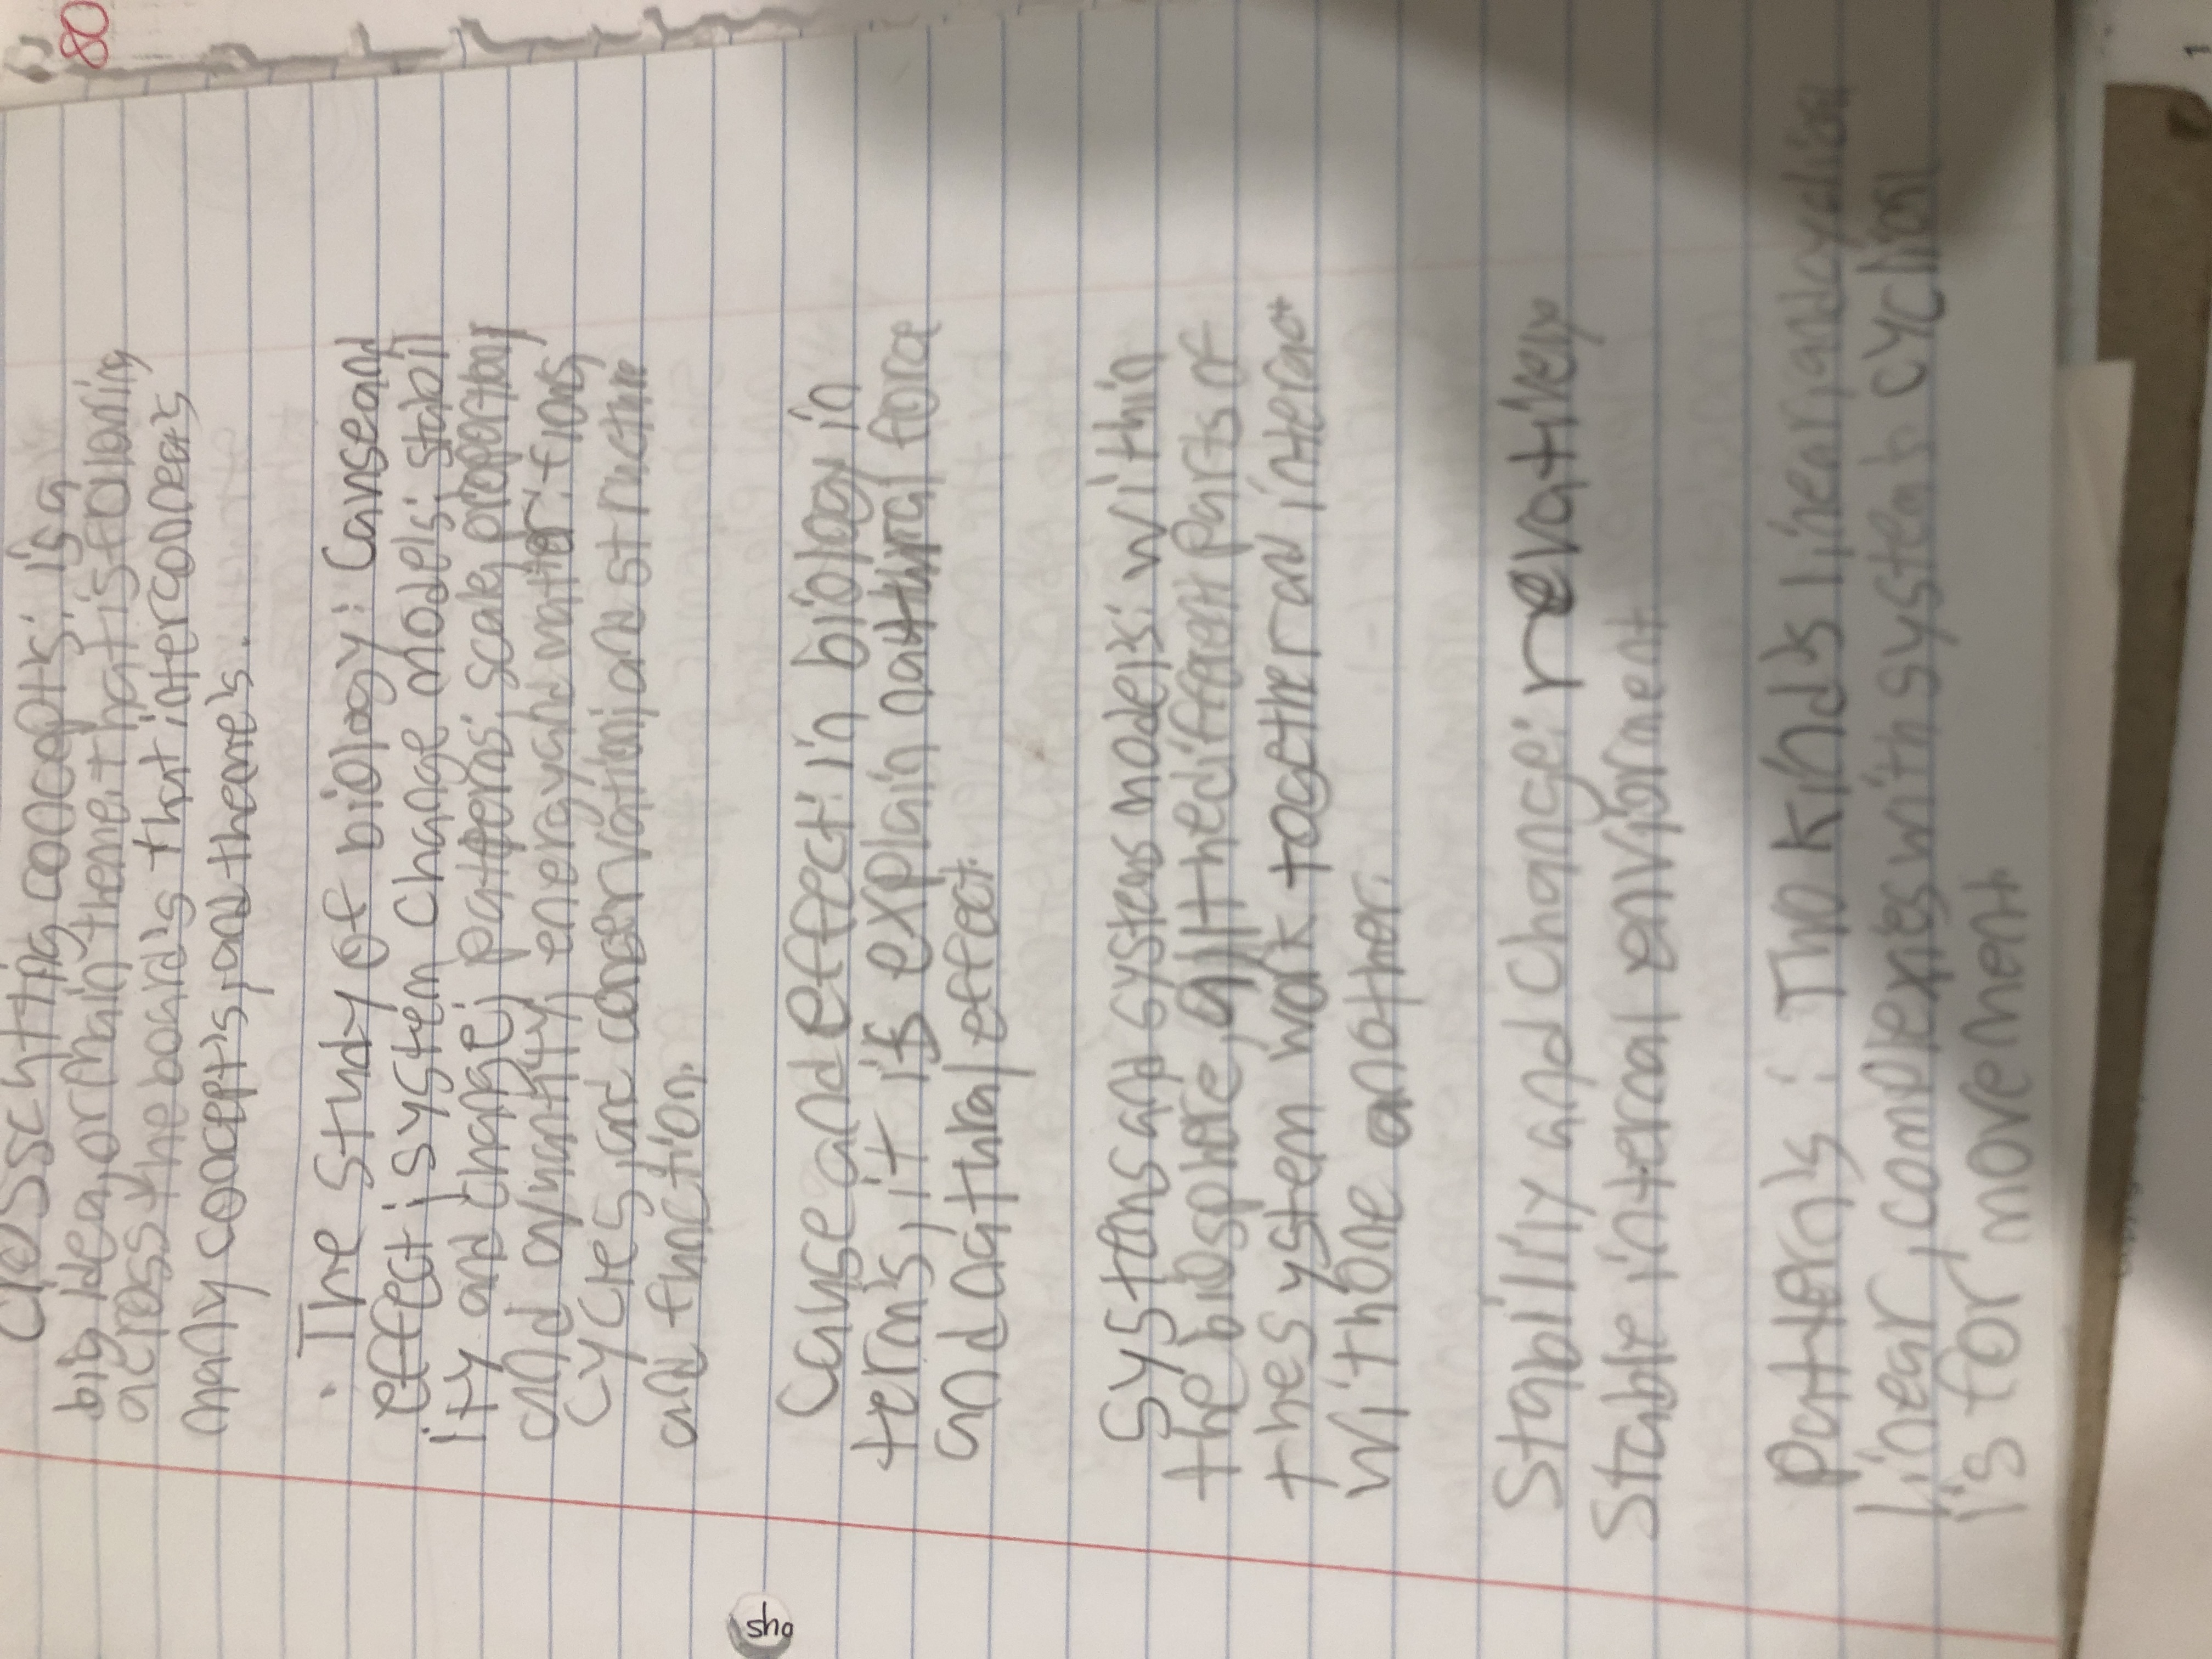 Crosschtting concepts: is a
big idea, or main theme, that is following
across the board's that interconnects
many concept's, and theame's.
. The study of biology: Cause and
effect; system change models; stabil
ity and change; pattern's; scale, proportion,
and quantity; energy and matter: flows,
cycles, and conservation; and structure
and function.
Cause and effect: in biology in
terms, it is explain natural force
and natural effect.
Systems and systems models: within
the biosphere, all the different parts of
the system work together and interact
with one another.
Stability and Change: revatively
Stable internal enviorment
Pattern's: Two kinds linear, and cyclical
linear, complexes with systeals cyclical
is for movement
sho
80